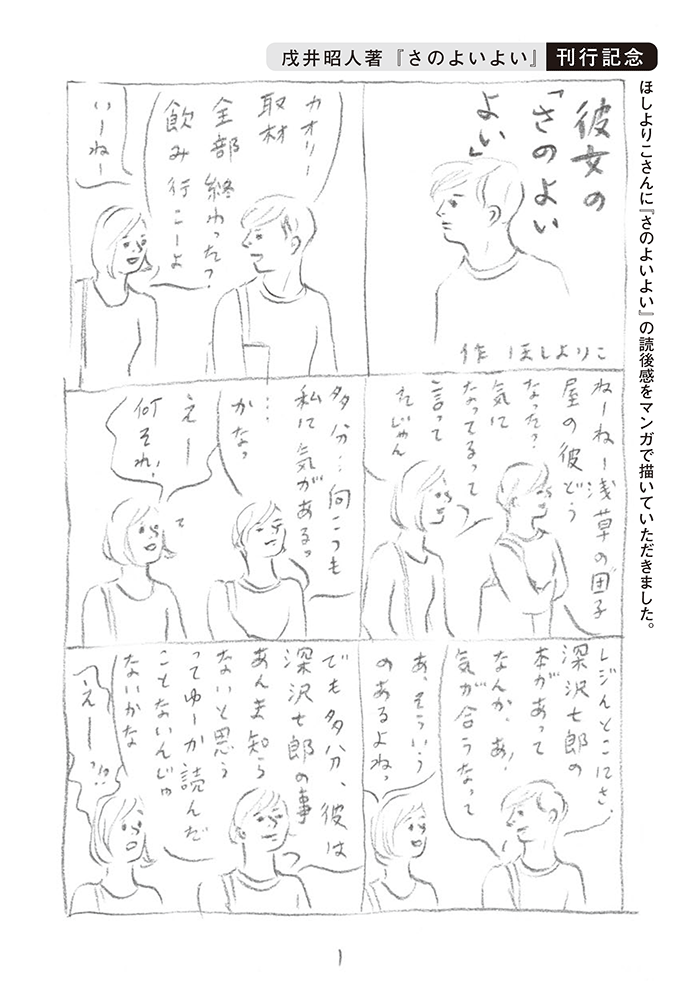 戌井昭人著『さのよいよい』 刊行記念
ほしよりこさんに『さのよいよい』の読後感をマンガで描いていただきました。
彼女の
「さのよい
よい」
作 ほしよりこ
カオリー
取材
全部終わった?
飲み行こーよ
いーねー
ねーねー浅草の団子
屋の彼どう
なった?
気に
なってるって
言って
たじゃん
多分…向こうも
私に気があるっ
…
かなっ
えー
何それ!
レジんとこにさ、
深沢七郎の
本があって
なんか、あ!
気が合うなって
あ、そういう
のあるよねっ
でも多分、彼は
深沢七郎の事
あんま知ら
ないと思う
ってゆーか読んだ
ことないんじゃ
ないかな
えーっ!?
1